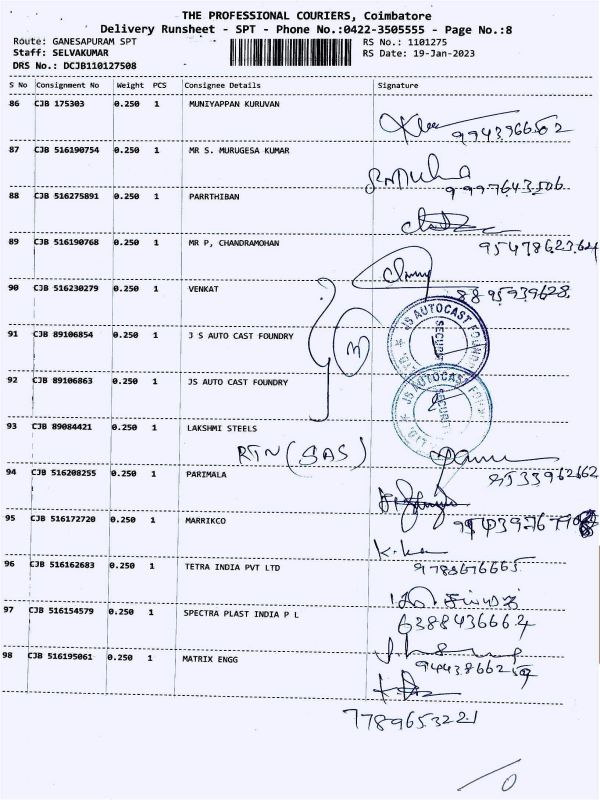 THE PROFESSIONAL COURIERS, Coimbatore
Delivery Runsheet - SPT - Phone No.:0422-3505555 - Page No.:8
Route: GANESAPURAM SPT RS No.: 1101275
Staff: SELVAKUMAR RS Date: 19-Jan-2023
DRS No.: DCJB110127508
S No Consignment No Weight PCS Consignee Details Signature
86 CJB 175303 0.250 1 MUNIYAPPAN KURUVAN
9943966502
87 CJB 516190754 0.250 1 MR S. MURUGESA KUMAR
9997643506
88 CJB 516275891 0.250 1 PARRTHIBAN
89 CJB 516190768 0.250 1 MR P, CHANDRAMOHAN
9547862364
90 CJB 516230279 0.250 1 VENKAT
8895939628
91 CJB 89106854 0.250 1 J S AUTO CAST FOUNDRY
JS AUTOCAST FOUN
SECURI
92 CJB 89106863 0.250 1 JS AUTO CAST FOUNDRY
JS AUTOCAST FOUN LTD.
SECURI
93 CJB 89084421 0.250 1 LAKSHMI STEELS
RTN (SAS)
8533962662
94 CJB 516208255 0.250 1 PARIMALA
95 CJB 516172720 0.250 1 MARRIKCO
96 CJB 516162683 0.250 1 TETRA INDIA PVT LTD
9785676665
97 CJB 516154579 0.250 1 SPECTRA PLAST INDIA P L
6388436664
98 CJB 516195061 0.250 1 MATRIX ENGG
7789653221